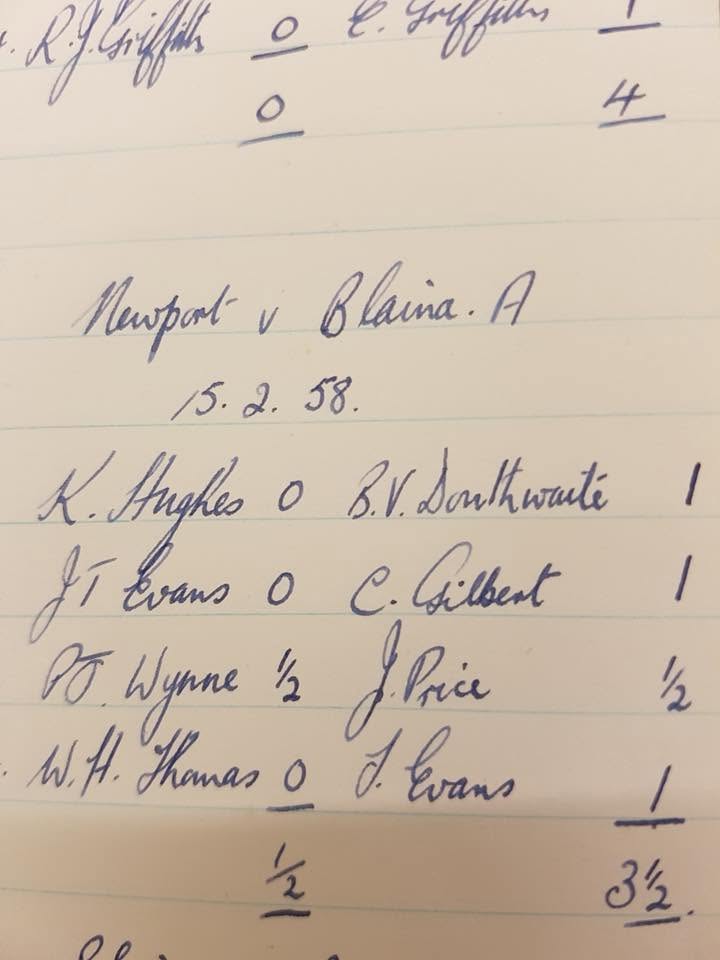 R.J. Griffiths 0 E. Griffiths 1
0 4
Newport v Blaina. A
15. 2. 58.
K. Hughes 0 B.V. Douthwaite 1
JT Evans 0 C. Gilbert 1
P.J. Wynne 1/2 J. Price 1/2
W.H. Thomas 0 I. Evans 1
1/2 3 1/2.